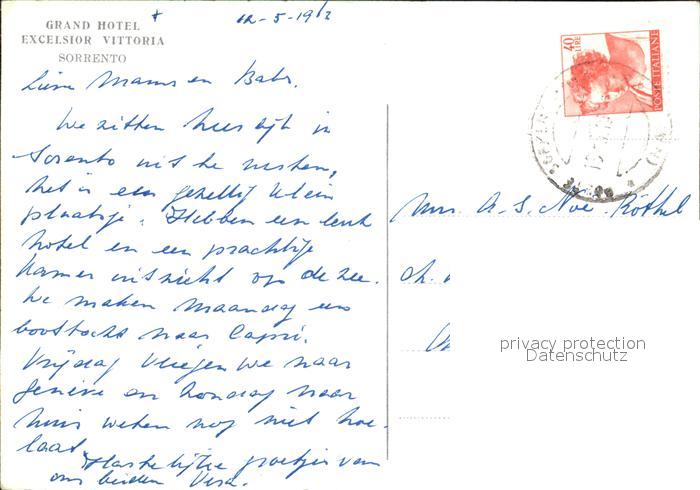 GRAND HOTEL
EXCELSIOR VITTORIA
SORRENTO
12-5-1962
Lieve Mams en Babs.
We zitten hier in
Sorento uit te rusten,
het is een gezellig klein
plaatsje. Hebben een leuk
hotel en een prachtige
kamer uitzicht op de zee.
We maken Maandag een
boottocht naar Capri.
Vrijdag vliegen we naar
Genève en Zondag naar
huis weten nog niet hoe
laat.
Hartelijke groetjes van
ons beiden Vera.
40
LIRE
POSTE ITALIANE
Mw. A. S. Noë-Röthel
privacy protection
Datenschutz